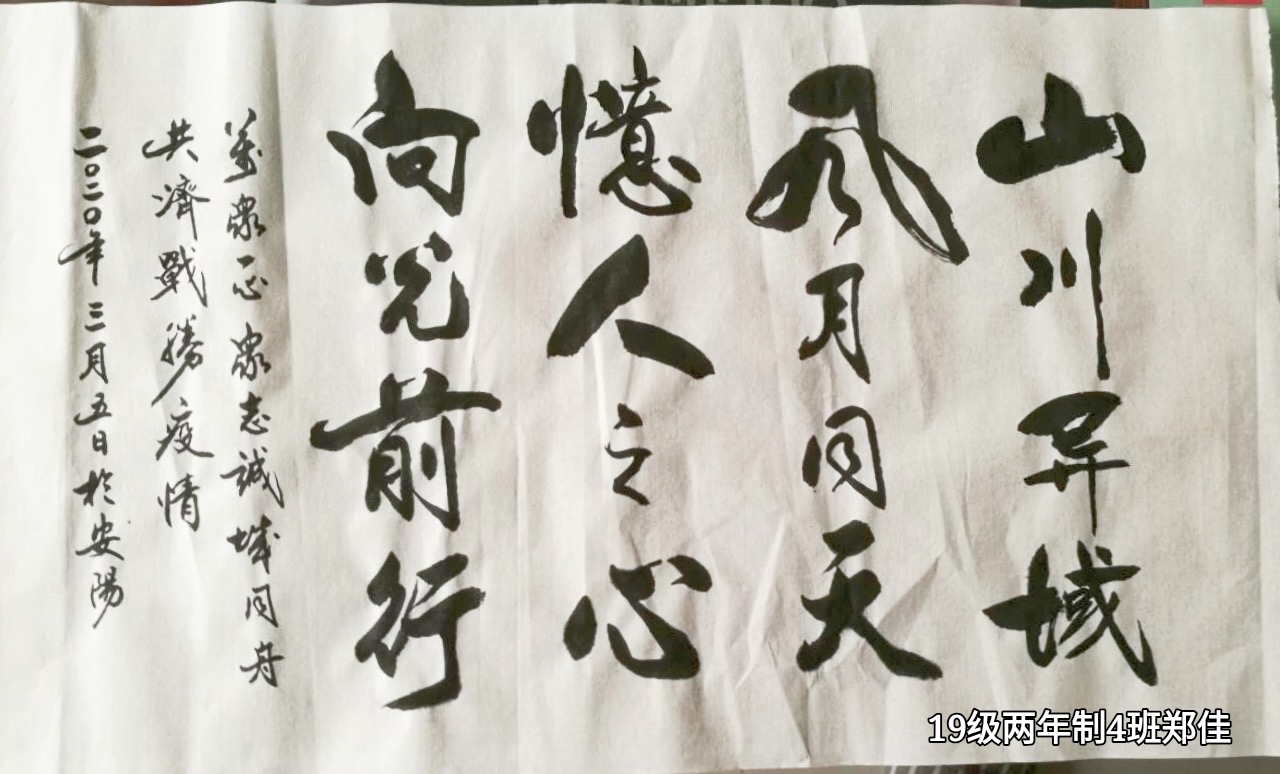 山川异域
风月同天
憶人之心
向光前行
萬眾一心眾志誠城同舟
共濟戰勝疫情
二〇二〇年三月五日於安陽
19级两年制4班郑佳